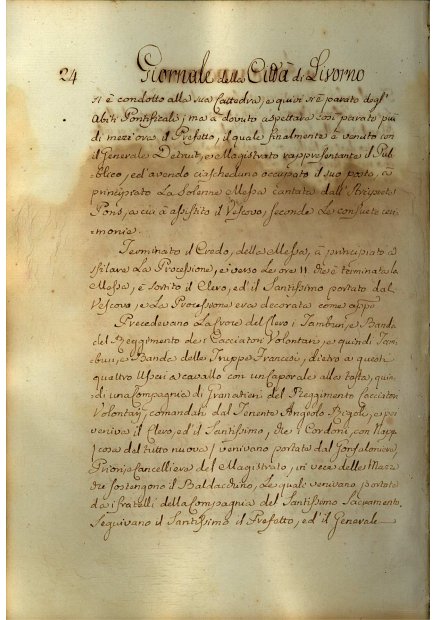 24 Giornale della Città di Livorno
si è condotto alla sua Cattedra, e quivi si è parato degl'
Abiti Pontificali; ma à dovuto aspettare così parato più
di mezz'ora il Prefetto, il quale finalmente è venuto con
il Generale e Magistrato rappresentante il Pub-
blico, ed avendo ciascheduno occupato il suo posto, à
principiato la solenne Messa cantata dall'Arciprete
Pons, a cui à assistito il Vescovo, secondo le consuete ceri-
monie.
Terminato il Credo, della Messa, à principiato a
sfilare la Processione, e verso le ore 11 che è terminata la
Messa, è sortito il Clero, ed il Santissimo portato dal
Vescovo, e la Processione era decorata come app.e
Precedevano la Croce del Clero i Tamburi, e Banda
del Reggimento dei Cacciatori Volontari, e quindi Tam-
buri, e Banda delle Truppe Francesi, dietro a questi
quattro Usseri a cavallo con un Caporale alla testa, quin-
di una Compagnia di Granatieri del Reggimento Cacciatori
Volontari, comandati dal Tenente Angiolo Bigoli, e poi
veniva il Clero, ed il Santissimo, che i Cordoni, con
(cosa del tutto nuova) venivano portati dal Gonfaloniere,
Priori, e Cancelliere del Magistrato, in vece delle Mazze
che sostengono il Baldacchino, le quali venivano portate
da i fratelli della Compagnia del Santissimo Sacramento.
Seguivano il Santissimo il Prefetto, ed il Generale